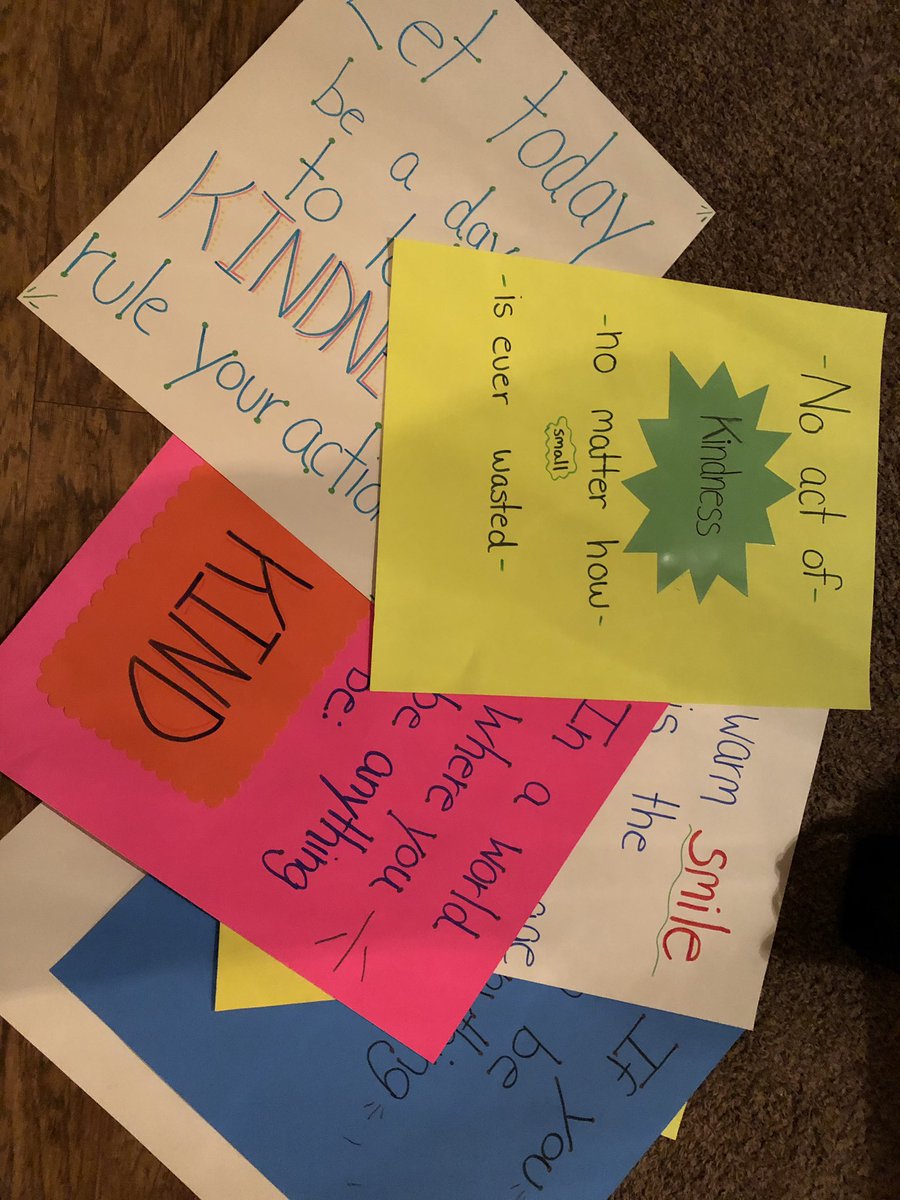 Let today
be a day
to
KINDNE
rule your action
-No act of-
Kindness
-no matter how-
small
-is ever wasted-
In a world
where you
be anything
be:
KIND
warm smile
is the
If you
be